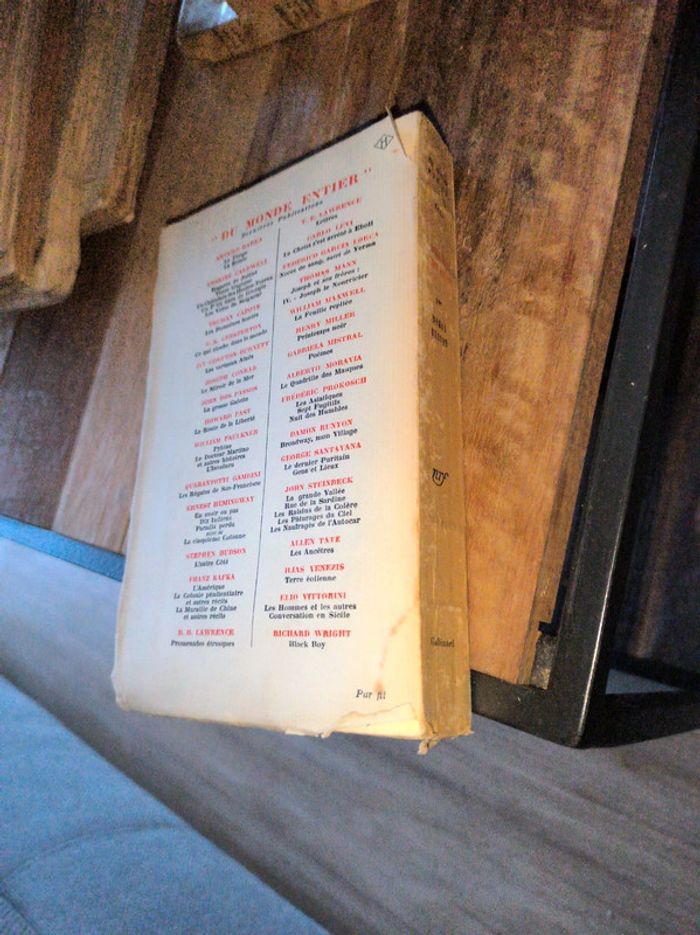 " DU MONDE ENTIER "
Dernières Publications
ARTURO BAREA
La Forge
La Route
ERSKINE CALDWELL
Un P'tit Gars de Géorgie
TRUMAN CAPOTE
Les Domaines hantés
G. K. CHESTERTON
Ce qui cloche dans le monde
IVY COMPTON BURNETT
Les vertueux Aînés
JOSEPH CONRAD
Le Miroir de la Mer
JOHN DOS PASSOS
La grosse Galette
HOWARD FAST
La Route de la Liberté
WILLIAM FAULKNER
Pylône
Le Docteur Martino
et autres histoires
L'Invaincu
QUARANTOTTI GAMBINI
Les Régates de San-Francisco
ERNEST HEMINGWAY
En avoir ou pas
Dix Indiens
Paradis perdu
suivi de
La cinquième Colonne
STEPHEN HUDSON
L'autre Côté
FRANZ KAFKA
L'Amérique
La Colonie pénitentiaire
et autres récits
La Muraille de Chine
et autres récits
D. H. LAWRENCE
Promenades étrusques
T. E. LAWRENCE
Lettres
CARLO LEVI
Le Christ s'est arrêté à Eboli
FEDERICO GARCIA LORCA
Noces de sang, suivi de Yerma
THOMAS MANN
Joseph et ses frères :
IV. - Joseph le Nourricier
WILLIAM MAXWELL
La Feuille repliée
HENRY MILLER
Printemps noir
GABRIELA MISTRAL
Poèmes
ALBERTO MORAVIA
Le Quadrille des Masques
FRÉDÉRIC PROKOSCH
Les Asiatiques
Sept Fugitifs
Nuit des Humbles
DAMON RUNYON
Broadway, mon Village
GEORGE SANTAYANA
Le dernier Puritain
Gens et Lieux
JOHN STEINBECK
La grande Vallée
Rue de la Sardine
Les Raisins de la Colère
Les Pâturages du Ciel
Les Naufragés de l'Autocar
ALLEN TATE
Les Ancêtres
ILIAS VENEZIS
Terre éolienne
ELIO VITTORINI
Les Hommes et les autres
Conversation en Sicile
RICHARD WRIGHT
Black Boy
Pur fil
nrf
Gallimard